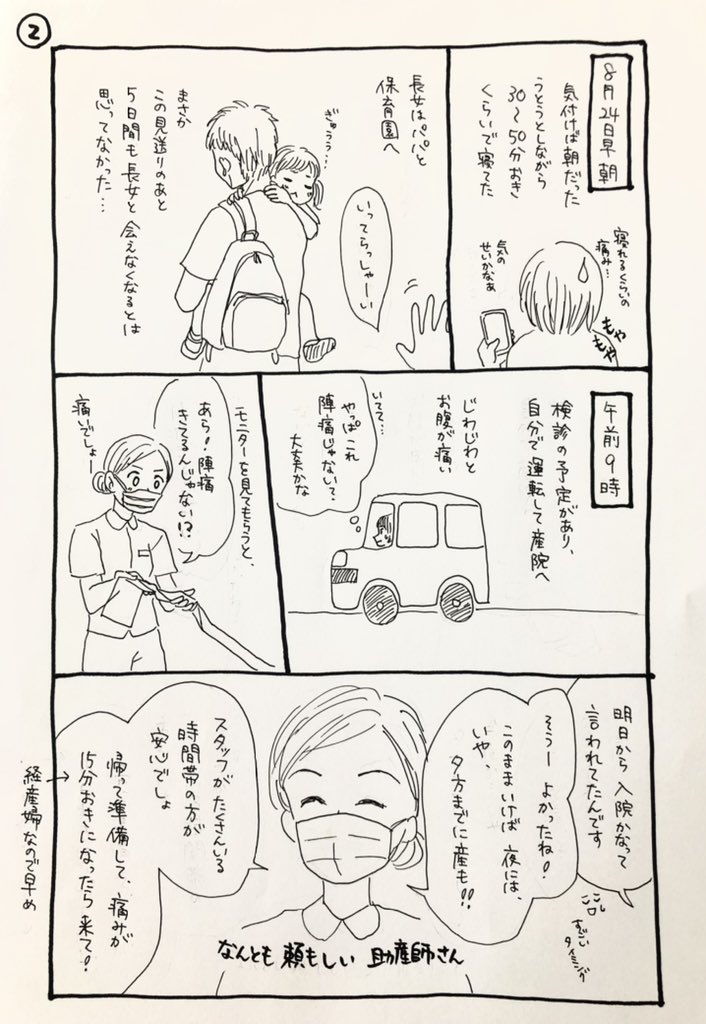 2
8月24日早朝
気付けば朝だった
うとうとしながら
30〜50分おき
くらいで寝てた
寝れるくらいの
痛み…
気の
せいかなあ
もや
もや
長女はパパと
保育園へ
ぎゅうう…
いってらっしゃーい
まさか
この見送りのあと
5日間も長女と会えなくなるとは
思ってなかった…
午前9時
検診の予定があり、
自分で運転して産院へ
じわじわと
お腹が痛い
いてて…
やっぱこれ
陣痛じゃない?
大丈夫かな
モニターを見てもらうと、
あら!陣痛
きてるんじゃない!?
痛いでしょー
明日から入院かなって
言われてたんです
すごい
タイミング
そうー よかったね!
このままいけば夜には、
いや、
夕方までに産も!!
スタッフがたくさんいる
時間帯の方が
安心でしょ
帰って準備して、痛みが
15分おきになったら来て!
経産婦なので早め
なんとも頼もしい 助産師さん